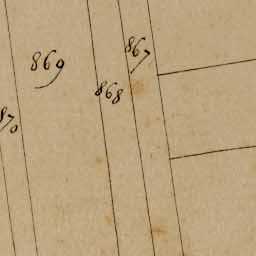 867
869
868
870